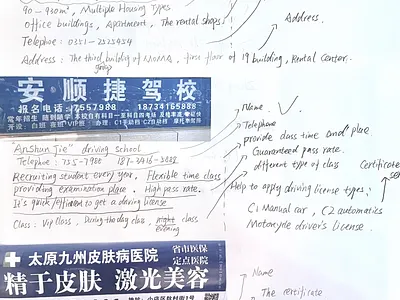 90-930m², Multiple Housing Types
Office buildings, Apartment, The rental shops.
Telephoe: 0351-2525454
Address: The third building of MOMA, first floor of 19 building, Rental Center.
Address.
安顺捷驾校
报名电话: 7557988 18734165888
常年招生 随到随学
开设: 白班 夜班 VIP班
"AnShun Jie" driving school
Telephone: 755-7988 187-3416-5888
Recruiting student every year, Flexible time class
providing examination place. High pass rate.
It's quick/efficient to get a driving license
Class: Vip class, During the day class, night class
evening
Name.
Telephone
provide class time and place
Guaranteed pass rate.
different type of class
Certificate
Help to apply driving license types:
C1 Manual car, C2 automatics
Motorcycle driver's license.
太原九州皮肤病医院
省市医保
定点医院
精于皮肤 激光美容
Name
The certificate